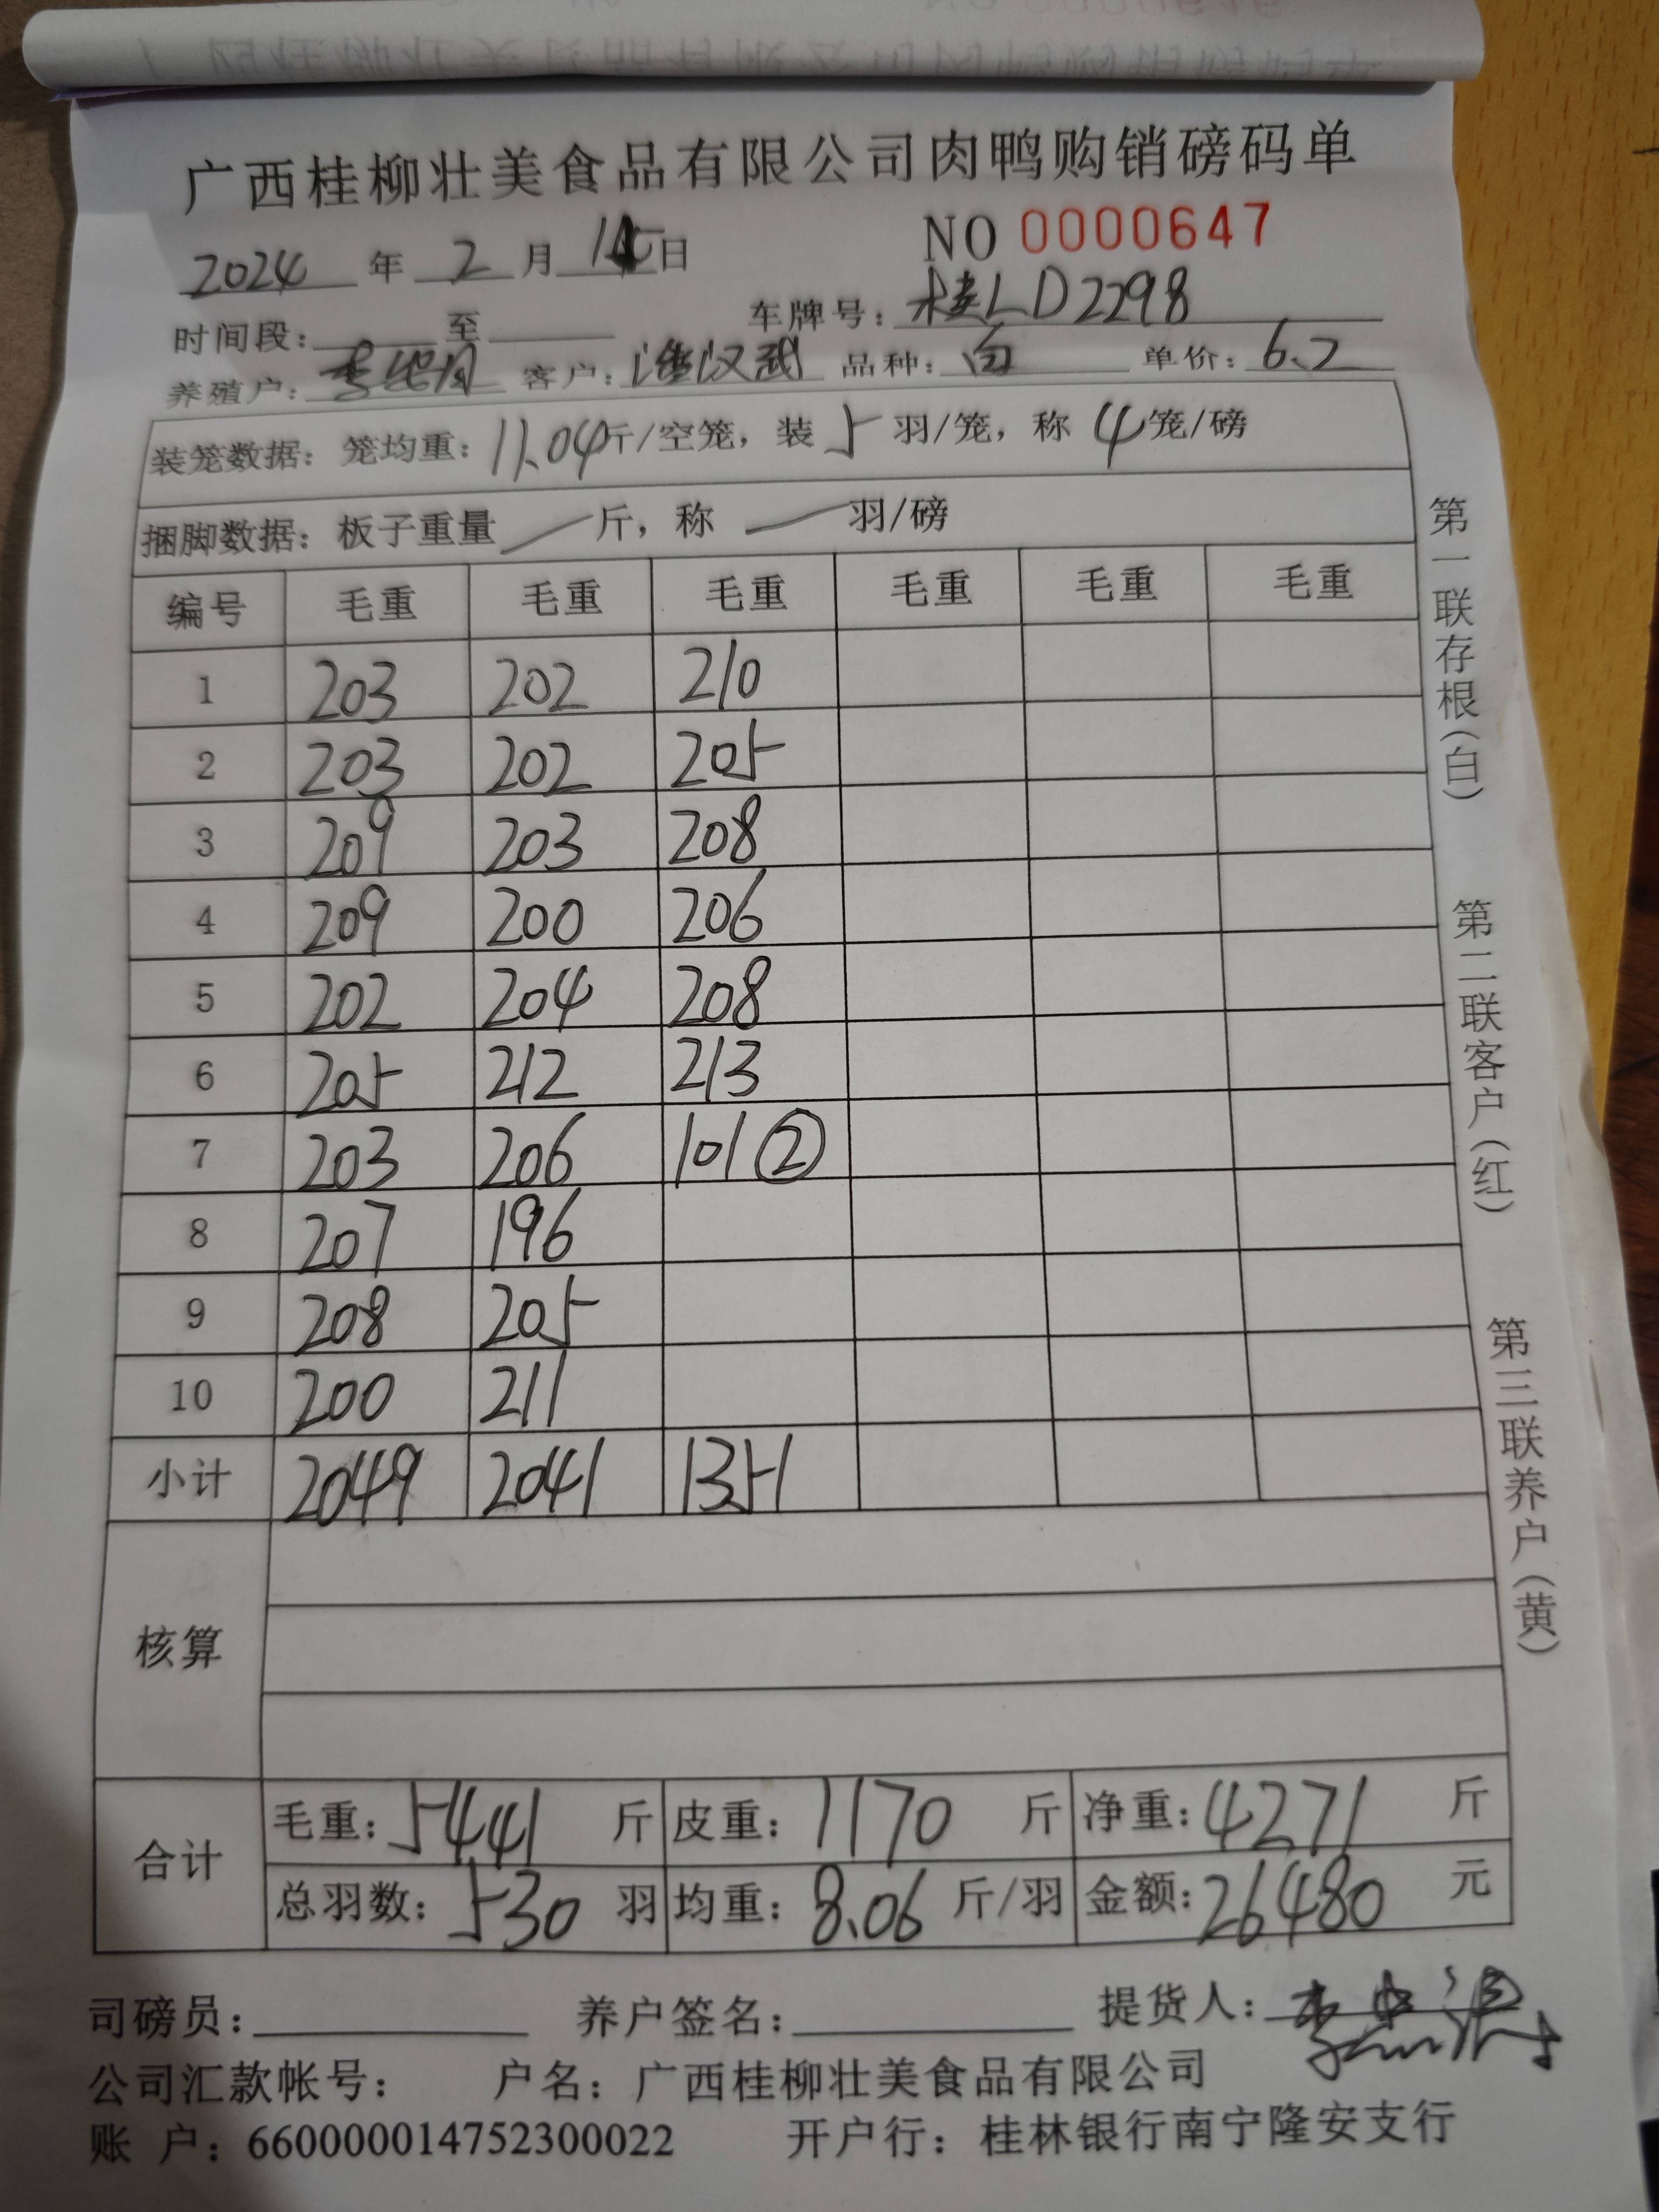 广西桂柳壮美食品有限公司肉鸭购销磅码单
2024 年 2 月 日 NO 0000647
时间段: 至 车牌号: 桂LD2298
养殖户: 客户: 汉武 品种: 白 单价: 6.2
装笼数据: 笼均重: 11.04斤/空笼, 装 5 羽/笼, 称 4 笼/磅
捆脚数据: 板子重量 / 斤, 称 / 羽/磅
编号 毛重 毛重 毛重 毛重 毛重 毛重
1 203 202 210
2 203 202 205
3 209 203 208
4 209 200 206
5 202 204 208
6 205 212 213
7 203 206 101②
8 207 196
9 208 205
10 200 211
小计 2049 2041 1351
核算
合计 毛重: 5441 斤 皮重: 1170 斤 净重: 4271 斤
总羽数: 530 羽 均重: 8.06 斤/羽 金额: 26480 元
司磅员: 养户签名: 提货人:
公司汇款帐号: 户名: 广西桂柳壮美食品有限公司
账 户: 660000014752300022 开户行: 桂林银行南宁隆安支行
第一联存根(白)
第二联客户(红)
第三联养户(黄)